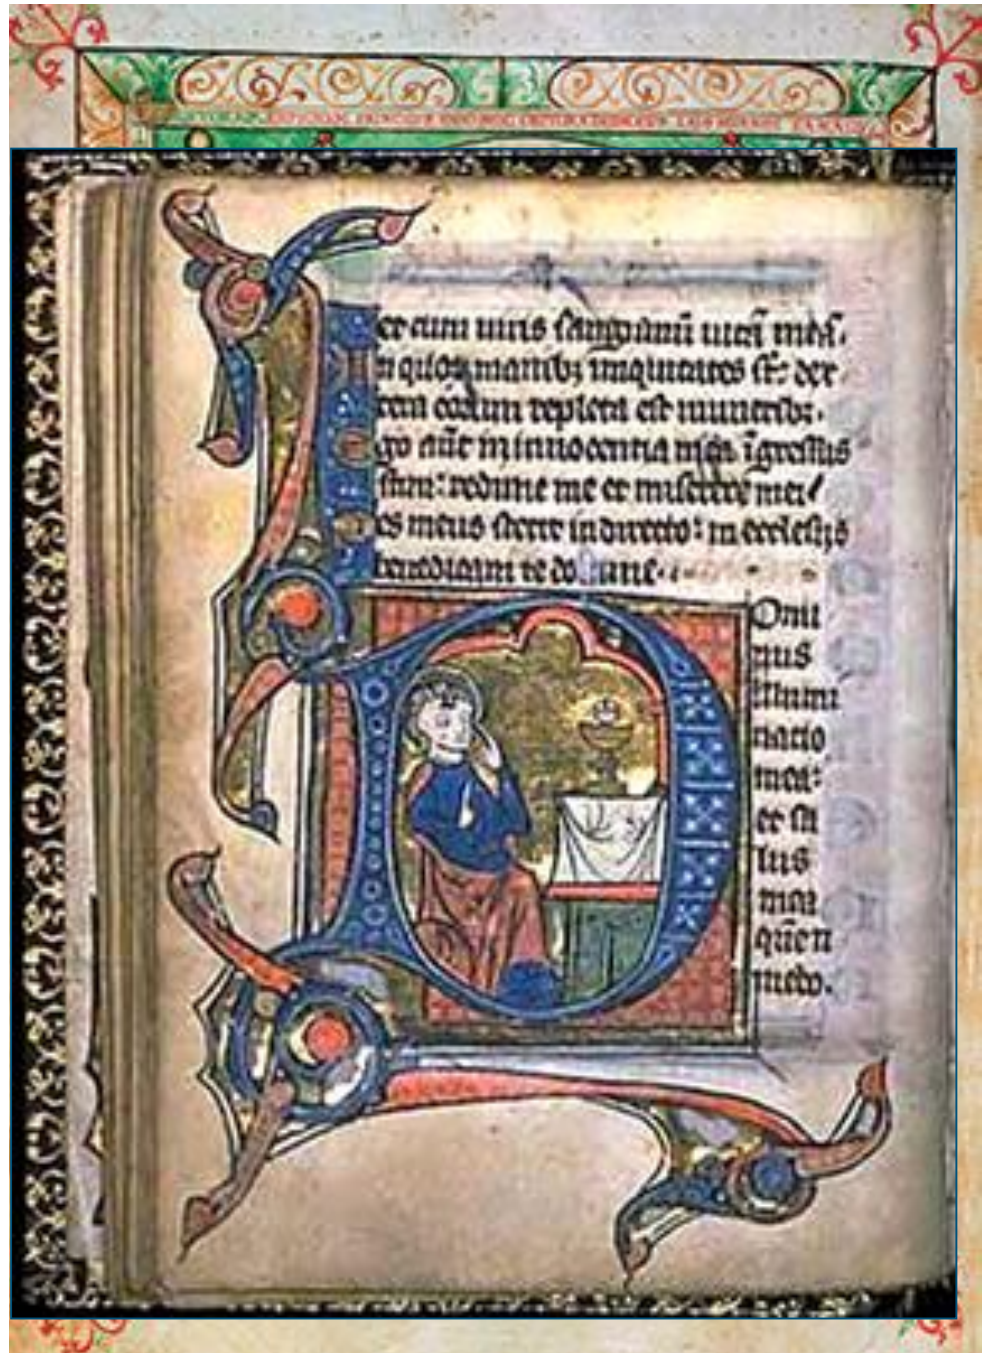 et cum uiris sanguinū uitā meā.
In quoꝝ manibꝫ iniquitates st̄: dex
tera eorum repleta est muneribꝫ.
Ego aūt in innocentia mea īgressus
sum: redime me et miserere mei
Pes meus stetit in directo: in ecclesiis
benedicam te domine.
Domi
nus
illumi
natio
mea:
et sa
lus
mea
quē ti
mebo.